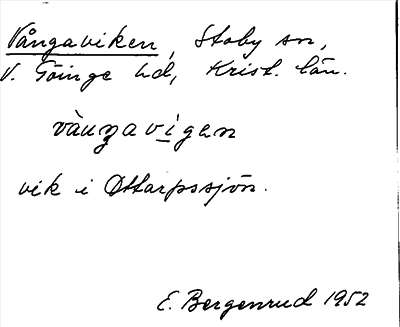 Vångaviken, Stoby sn,
V. Göinge hd, Krist. län.
vàuŋavigen
vik i Ottarpssjön.
E. Bergenrud 1952